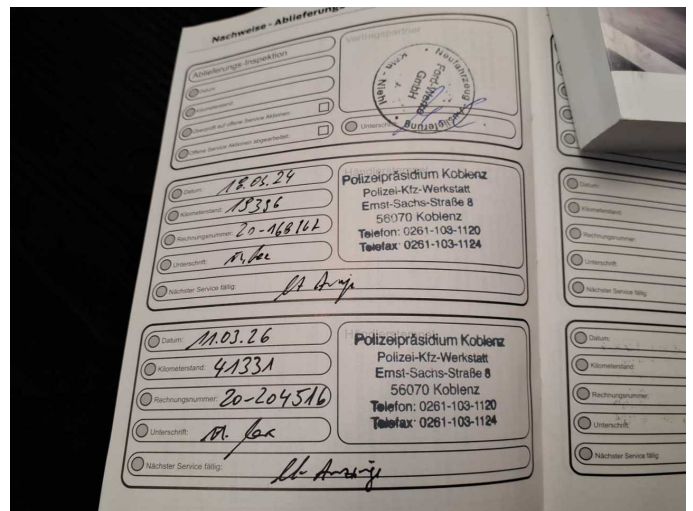 Nachweise - Ablieferung
Ablieferungs-Inspektion
Datum:
Kilometerstand:
Überprüft auf offene Service Aktionen:
Offene Service Aktionen abgearbeitet:
Vertragspartner
Neufahrzeug - Auslieferung
Köln - Niehl
Ford-Werke
GmbH
Unterschrift
Datum: 18.03.24
Kilometerstand: 19396
Rechnungsnummer: 20-168167
Unterschrift:
Nächster Service fällig: lt Anzeige
Polizeipräsidium Koblenz
Polizei-Kfz-Werkstatt
Ernst-Sachs-Straße 8
56070 Koblenz
Telefon: 0261-103-1120
Telefax: 0261-103-1124
Datum: 11.03.26
Kilometerstand: 41331
Rechnungsnummer: 20-204516
Unterschrift:
Nächster Service fällig: lt Anzeige
Händlerstempel
Polizeipräsidium Koblenz
Polizei-Kfz-Werkstatt
Ernst-Sachs-Straße 8
56070 Koblenz
Telefon: 0261-103-1120
Telefax: 0261-103-1124
Datum:
Kilometerstand:
Rechnungsnummer:
Unterschrift:
Nächster Service fällig:
Datum:
Kilometerstand:
Rechnungsnummer:
Unterschrift:
Nächster Service fällig